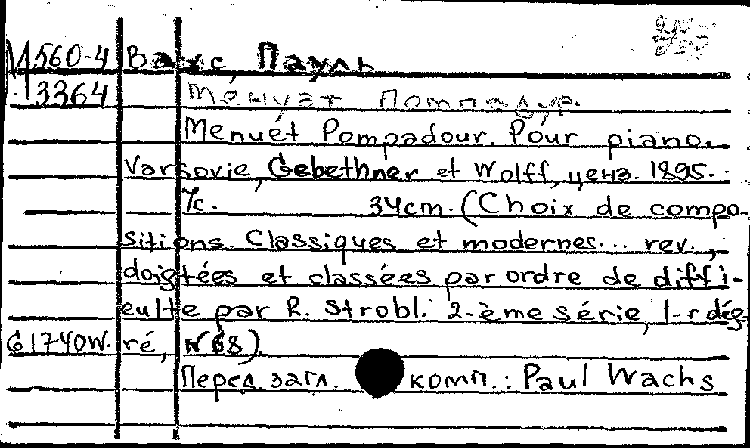 М 560-4 Вакс, Пауль
3364 Менуэт Помпадур.
Menuet Pompadour. Pour piano.
Varsovie, Gebethner et Wolff, ценз. 1895.
7с. 34cm. (Choix de compo-
sitions Classiques et modernes... rev.,
doigtées et classées par ordre de diffi-
culte par R. Strobl. 2-ème série, 1-r dég-
G1740W. ré, N 68)
Перед загл. комп.: Paul Wachs